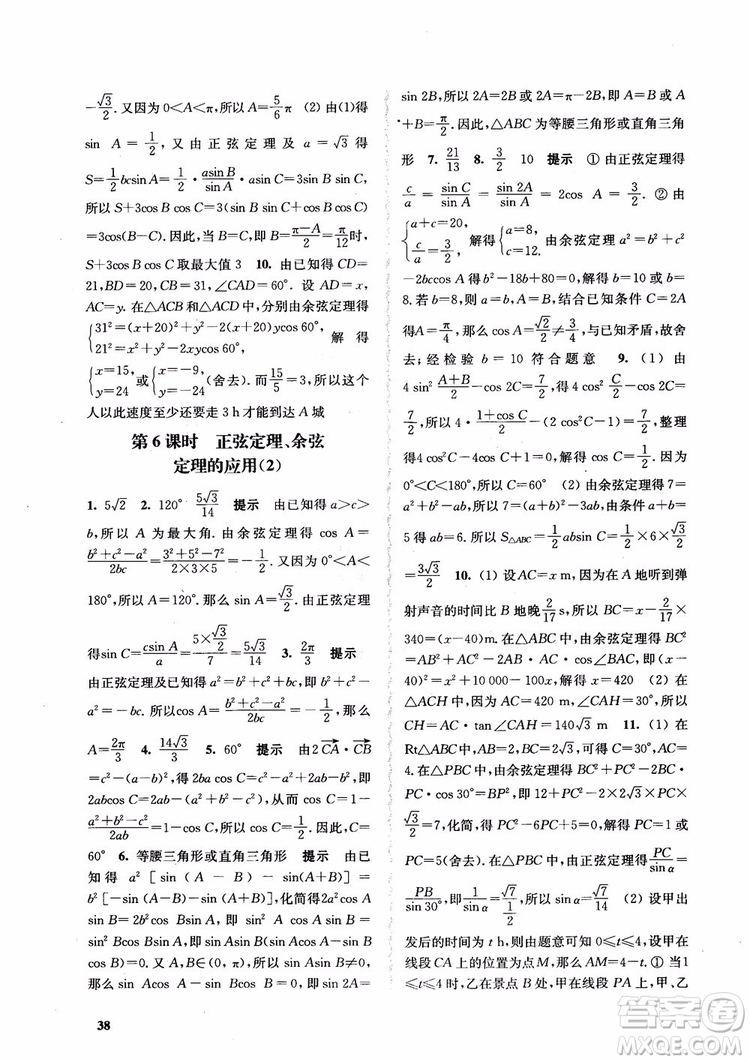 -√3/2. 又因为 0<A<π,所以 A=5/6 π (2) 由(1)得
sin A=1/2,又由正弦定理及 a=√3 得
S=1/2 bcsin A=1/2 · asin B/sin A · asin C=3sin Bsin C.
所以 S+3cos B cos C=3(sin Bsin C+cos Bcos C)
=3cos(B-C). 因此,当 B=C,即 B=(π-A)/2=π/12时,
S+3cos B cos C 取最大值 3 10. 由已知得 CD=
21,BD=20,CB=31,∠CAD=60°. 设 AD=x,
AC=y. 在△ACB 和△ACD 中,分别由余弦定理得
{31²=(x+20)²+y²-2(x+20)ycos 60°,
21²=x²+y²-2xycos 60°, 解得
{x=15,
y=24 或{ (舍去). 而 3×5=15,所以这个
人以此速度至少还要走 3 h 才能到达 A 城
第 6 课时 正弦定理、余弦
定理的应用(2)
1. 5√2 2. 120° 5√3/14 提示 由已知得 a>c>
b,所以 A 为最大角. 由余弦定理得 cos A=
(b²+c²-a²)/2bc=(3²+5²-7²)/(2×3×5)=-1/2. 又因为 0°<A<
180°,所以 A=120°. 那么 sin A=√3/2. 由正弦定理
得sin C=csin A/a=(5×√3/2)/7=5√3/14 3. 2π/3 提示
由正弦定理及已知得 a²=b²+c²+bc. 由余弦定
理得 a²=b²+c²-2bccos A,所以 cos A=-1/2,那么
A=2π/3 4. 14√3/3 5. 60° 提示 由 2CA·CB
=c²-(a-b)²,得 2ba cos C=c²-(a-b)²,即
2abcos C=c²-(a²+b²)+2ab,从而 cos C=1-
(a²+b²-c²)/2ab=1-cos C,所以 cos C=1/2. 因此,C=
60° 6. 等腰三角形或直角三角形 提示 由已
知得 a² [sin (A - B) - sin(A+B)] =
b² [-sin(A-B)-sin(A+B)],化简得 2a²cos A
sin B=2b²cos Bsin A. 由正弦定理得 sin²Acos A
sin B=sin²Bcos Bsin A,即 sin Asin B(sin Acos A-
sin Bcos B)=0. 又 A,B∈(0,π),所以 sin Asin B≠0,
那么 sin Acos A=sin Bcos B. 因此,sin 2A=
sin 2B,所以 2A=2B或 2A=π-2B,即 A=B 或 A
+B=π/2. 因此,△ABC 为等腰三角形或直角三角
形 7. 21/13 8. 3/2 10 提示 ① 由正弦定理得
c/a=sin C/sin A=sin 2A/sin A=2cos A=3/2. ② 由已知得
{a+c=20,
c/a=3/2, 解得{a=8,
c=12. 由余弦定理 a²=b²+c²
-2bccos A 得 b²-18b+80=0,解得 b=10 或 b=
8. 若 b=8,所以 A=B. 结合已知条件 C=2A
得A=π/4,那么 cos A=√2/2≠3/4,与已知矛盾,故舍
去;经检验 b=10 符合题意 9. (1) 由
4 sin² (A+B)/2-cos 2C=7/2,得 4cos² C/2-cos 2C=
7/2,所以 4·(1+cos C)/2-(2cos²C-1)=7/2,整理
得 4cos²C-4cos C+1=0,解得 cos C=1/2. 因为
0°<C<180°,所以 C=60° (2) 由余弦定理得
c²=a²+b²-ab,即 7=(a+b)²-3ab,由条件 a+b=
5 得 ab=6. 所以 S△ABC=1/2 absin C=1/2×6×√3/2
=3√3/2 10. (1) 设AC=x m,由在 A 地听到弹
射声音的时间比 B 地晚 2/17 s,所以 BC=x-2/17×
340=(x-40)m. 在△ABC 中,由余弦定理得 BC²
=AB²+AC²-2AB·ACcos∠BAC,即(x-
40)²=x²+10 000-100x,解得 x=420 (2) 在
△ACH 中,因为 AC=420 m,∠CAH=30°,所以
CH=AC·tan∠CAH=140√3 m 11. (1) 在
Rt△ABC中,AC=2,BC=2√3,所以∠B=30°,AB=
4. 在△PBC 中,由余弦定理得 PC²+BC²-2BC·
PC·cos30°=BP²,即 12+PC²-2×2√3×PC×
√3/2=7,化简,得 PC²-6PC+5=0,解得 PC=1 或
PC=5(舍去). 在△PBC中,由正弦定理得 PC/sin α=
PB/sin 30°,即1/sin α=√7/(1/2),所以 sin α=√7/14 (2) 设甲出
发后的时间为 t h,则由题意可知 0≤t≤4,设甲在
线段 CA 上的位置为点 M,那么 AM=4-t. ① 当1
≤t≤4时,乙在景点 B 处,甲在线段 PA 上,甲、乙
38